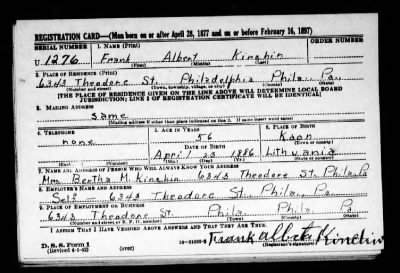 REGISTRATION CARD—(Men born on or after April 28, 1877 and on or before February 16, 1897)
SERIAL NUMBER 1. NAME (Print) ORDER NUMBER
U 1276 Frank Albert Kinchin
(First) (Middle) (Last)
2. PLACE OF RESIDENCE (Print)
6343 Theodore St. Philadelphia Phila. Pa.
(Number and street) (Town, township, village, or city) (County) (State)
[THE PLACE OF RESIDENCE GIVEN ON THE LINE ABOVE WILL DETERMINE LOCAL BOARD
JURISDICTION; LINE 2 OF REGISTRATION CERTIFICATE WILL BE IDENTICAL]
3. MAILING ADDRESS
Same
[Mailing address if other than place indicated on line 2. If same insert word same]
4. TELEPHONE 5. AGE IN YEARS 6. PLACE OF BIRTH
none 56
DATE OF BIRTH (Town or county)
April 23 1886 Lithuania
(Exchange) (Number) (Mo.) (Day) (Yr.) (State or country)
7. NAME AND ADDRESS OF PERSON WHO WILL ALWAYS KNOW YOUR ADDRESS
Mrs. Bertha M. Kinchin 6343 Theodore St. Phila Pa
8. EMPLOYER'S NAME AND ADDRESS
Self - 6343 Theodore St. Phila. Pa
9. PLACE OF EMPLOYMENT OR BUSINESS
6343 Theodore St. Phila Phila Pa
(Number and street or R. F. D. number) (Town) (County) (State)
I AFFIRM THAT I HAVE VERIFIED ABOVE ANSWERS AND THAT THEY ARE TRUE.
D. S. S. Form 1 Frank Albert Kinchin
(Revised 4-1-42) (over) (Registrant's signature)